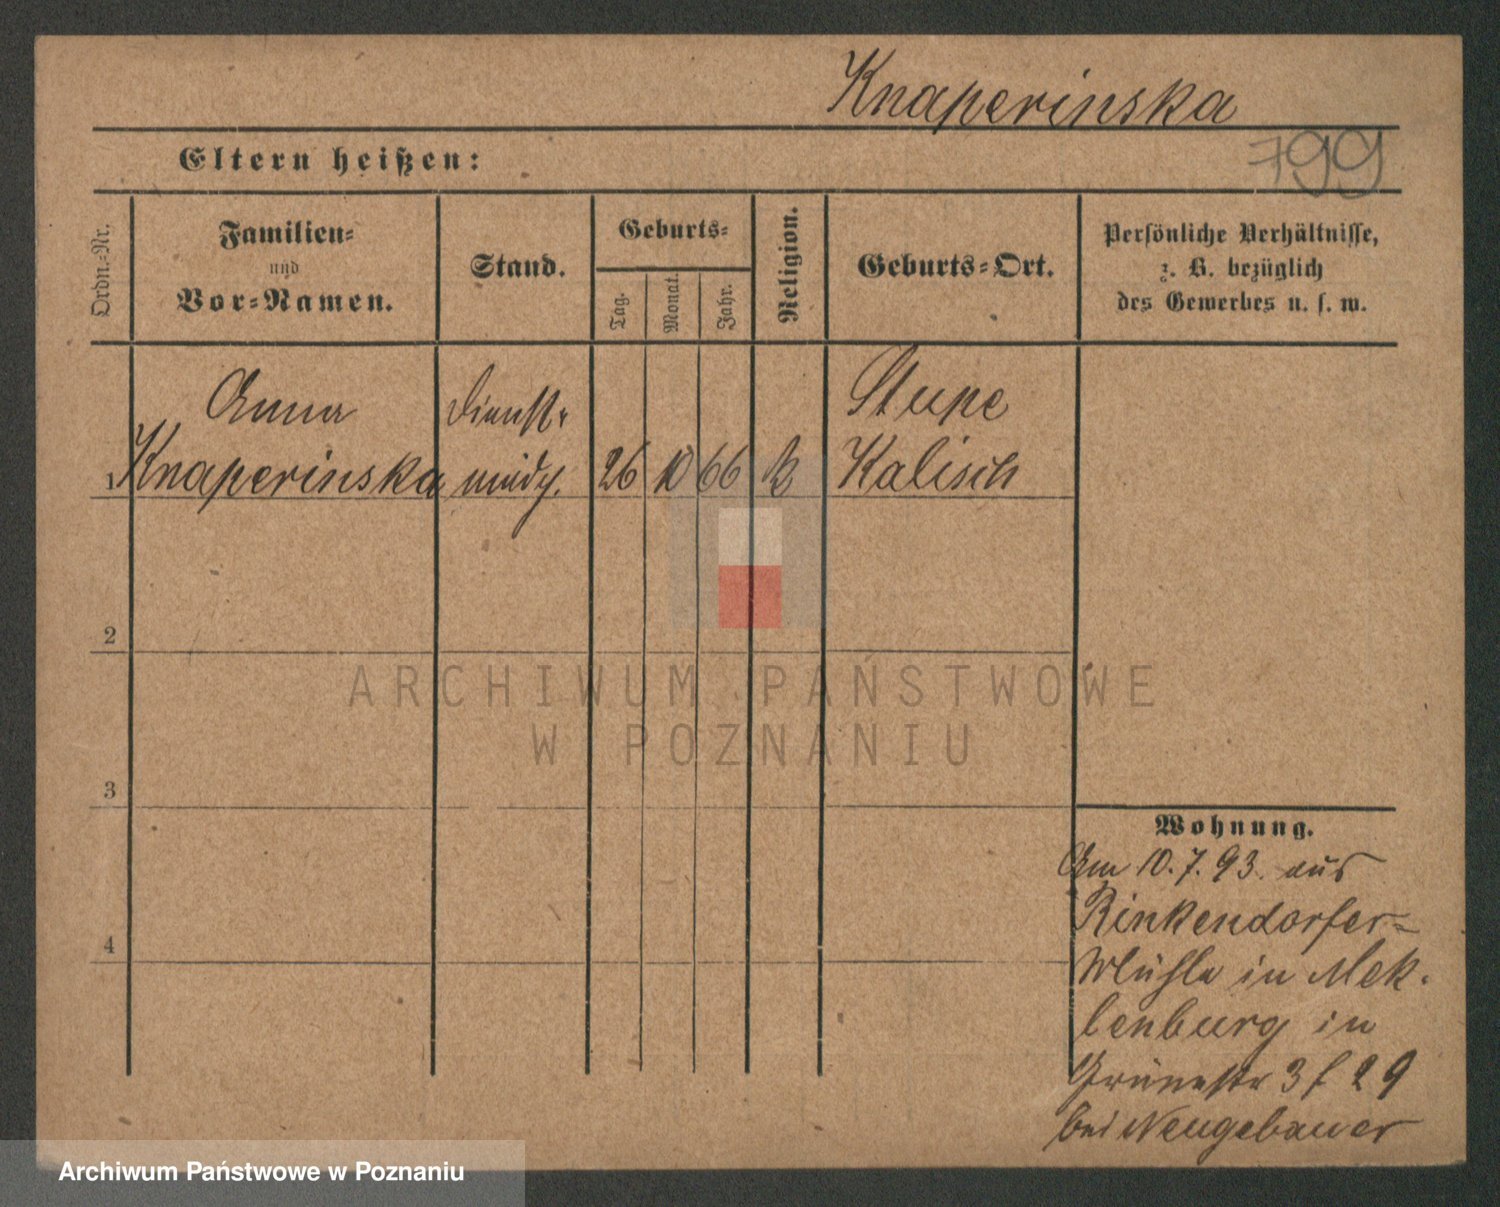 Knaperinska
Eltern heißen:
799
Ordn.-Nr.
Familien-
und
Vor-Namen.
Stand.
Geburts-
Tag.
Monat.
Jahr.
Religion.
Geburts-Ort.
Persönliche Verhältnisse,
z. B. bezüglich
des Gewerbes u. s. w.
Anna
Knaperinska
Dienst-
mdch.
26
10
66
k
Stupe
Kalisch
1
2
3
4
ARCHIWUM PAŃSTWOWE
W POZNANIU
Wohnung.
Am 10.7.93. aus
Rinkendorfer-
Mühle in Mek-
lenburg in
Grünestr 3 f 29
bei Neugebauer
Archiwum Państwowe w Poznaniu